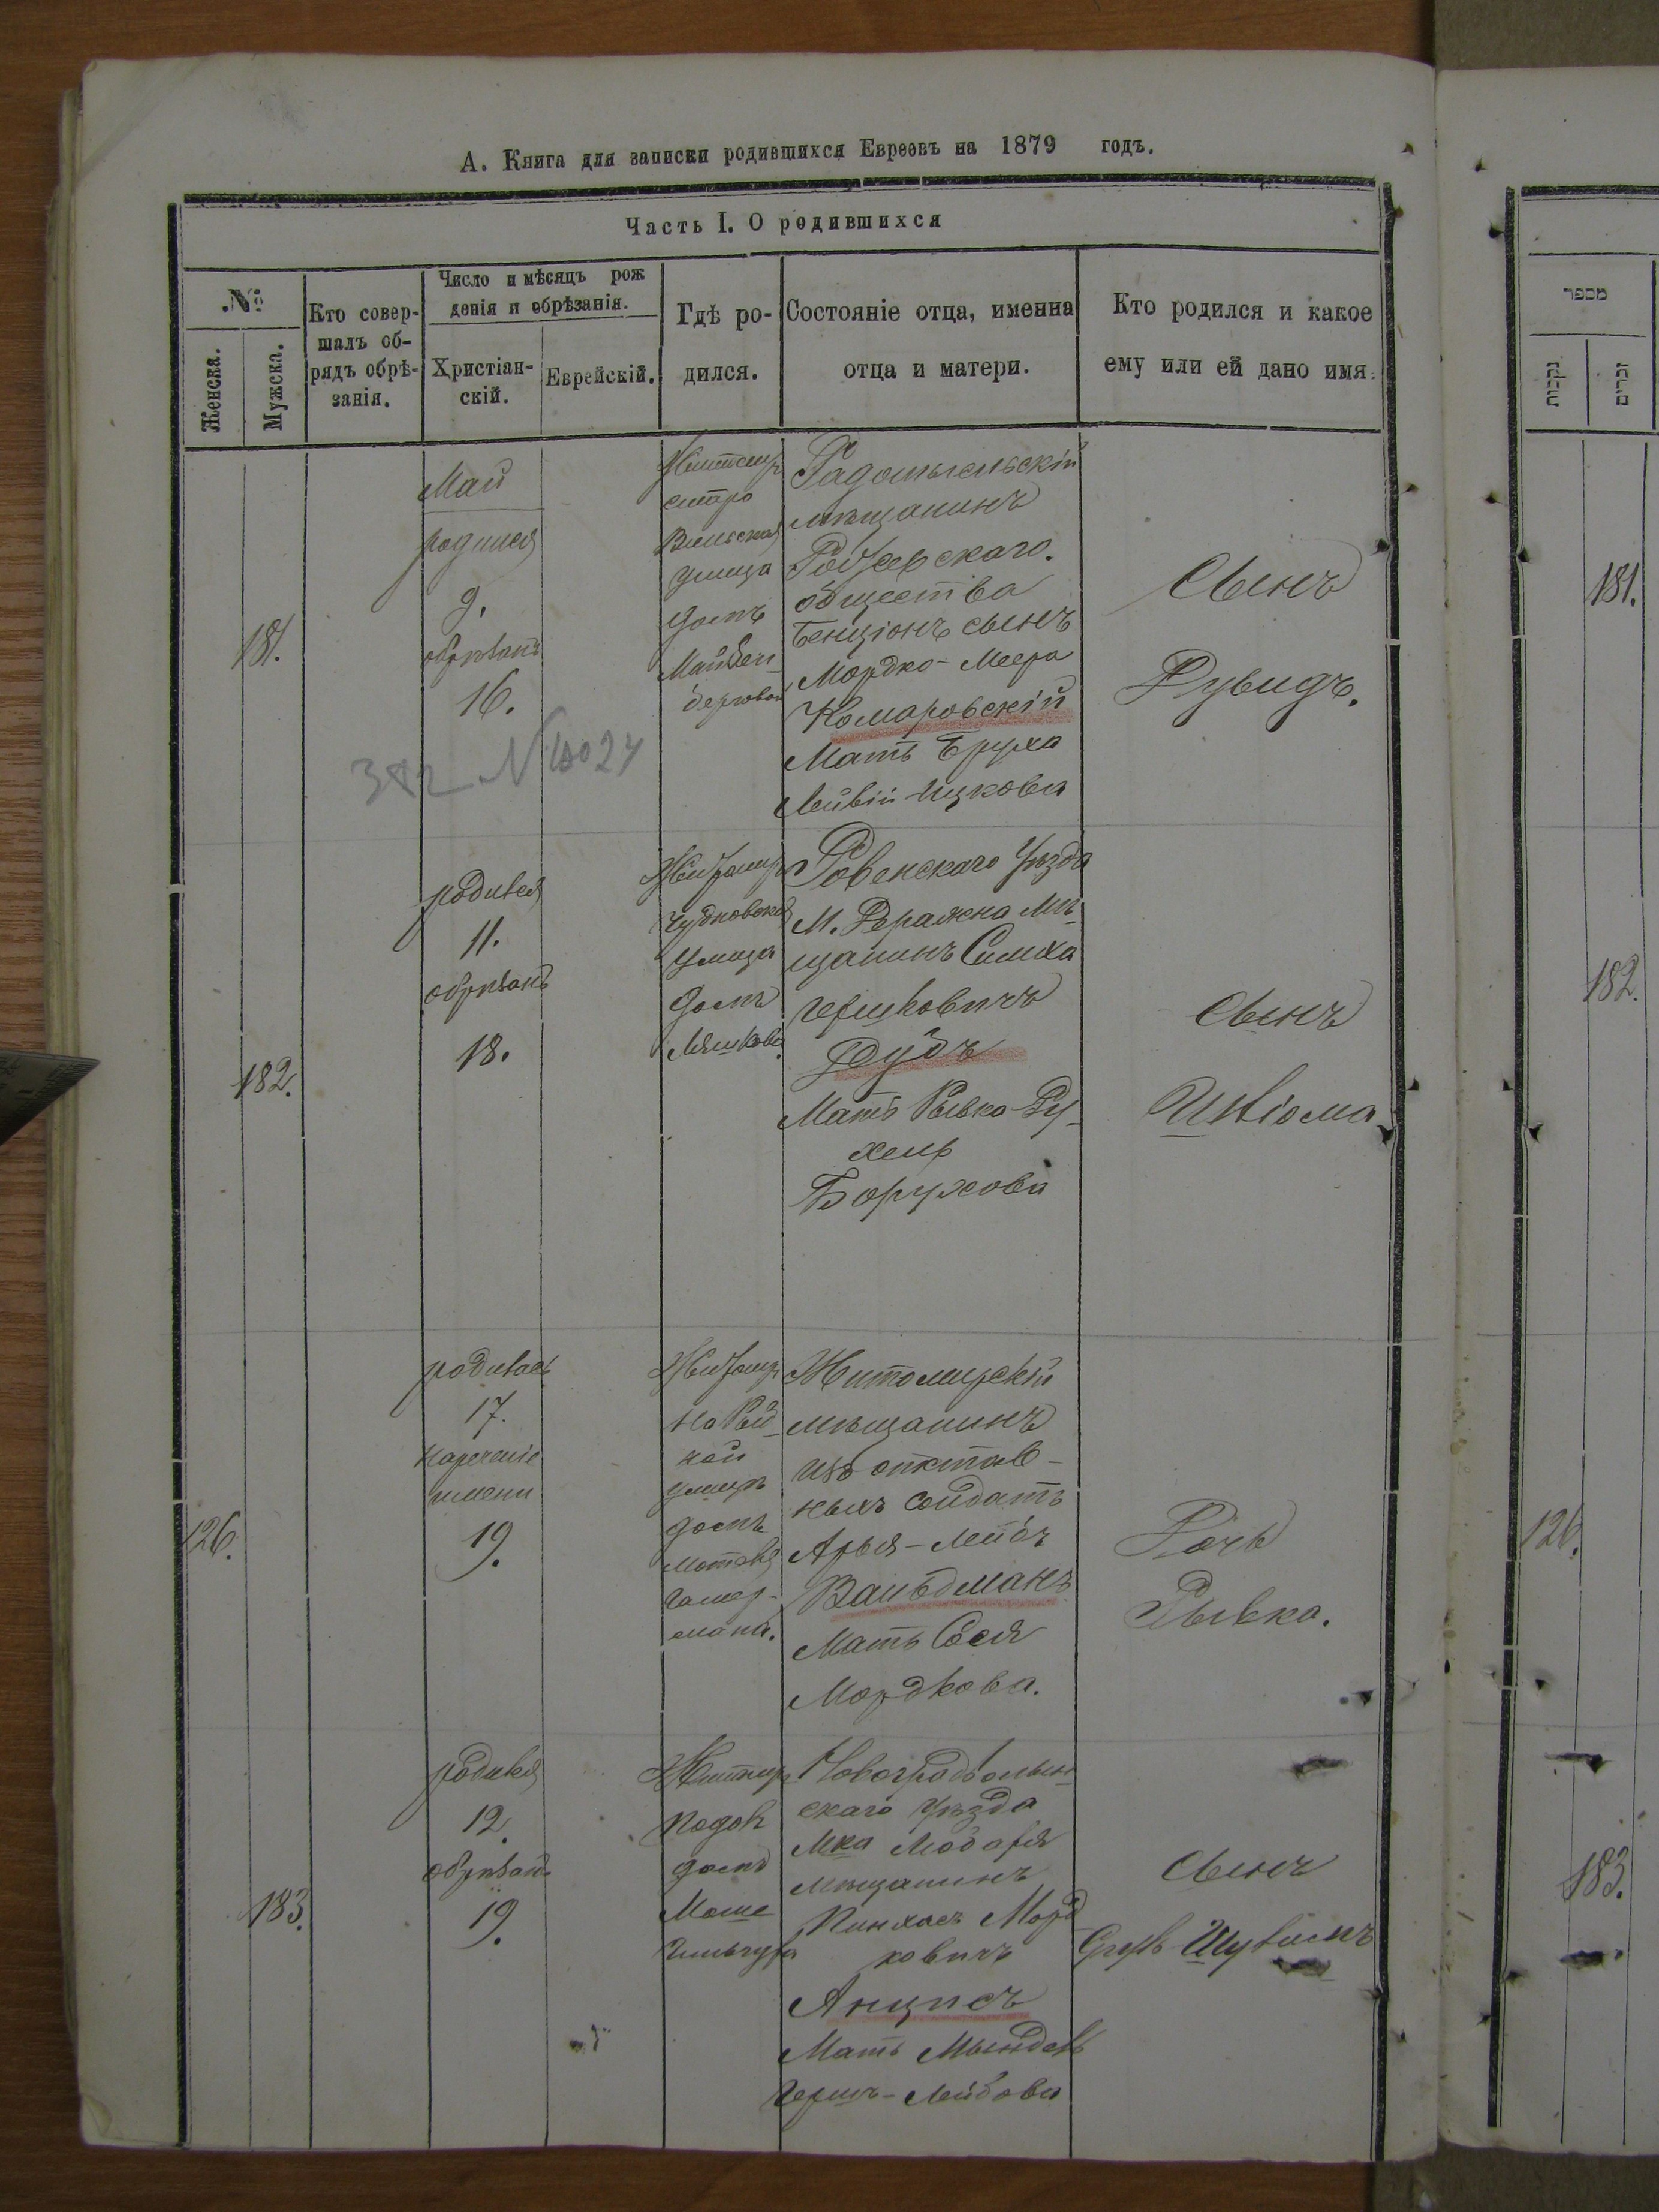 А. Книга для записки родившихся Евреевъ на 1879 годъ.
Часть I. О родившихся
№
Женска.
Мужска.
Кто совер-
шалъ об-
рядъ обрѣ-
занія.
Число и мѣсяцъ рож
денія и обрѣзанія.
Христіан-
скій.
Еврейскій.
Гдѣ ро-
дился.
Состояніе отца, именна
отца и матери.
Кто родился и какое
ему или ей дано имя.
מספר
נקבות
זכרים
181.
Май
родился
9.
обрѣзанъ
16.
Житомиръ
старо
Вильская
улица
домъ
Майден-
берговой
Радомысльскій
мѣщанинъ
общества
Бенціонъ сынъ
Мордко-Меера
Комаровскій
Мать Бруха
Лейвій-Ицкова
Сынъ
181.
182.
родился
11.
обрѣзанъ
18.
Житомиръ
Чудновская
улица
домъ
Ровенскаго уѣзда
М. Деражна мѣ-
щанинъ Симха
Гершковичъ
Дубъ
Мать Рывка-Ру-
хель
Борухова
Сынъ
182.
126.
родилась
17.
нареченіе
имени
19.
Житомиръ
на Рыб-
ной
улицѣ
домъ
Житомирскій
мѣщанинъ
изъ отстав-
ныхъ солдатъ
Арья-Лейбъ
Вальдманъ
Мать Сося
Мордкова.
Дочь
Рывка.
126.
183.
родился
12.
обрѣзанъ
19.
Житомиръ
Подолъ
домъ
Моше
Новоградволын-
скаго уѣзда
Мка Любаря
мѣщанинъ
Пинхасъ Морд
ковичъ
Анцисъ
Мать Мындель
Гершъ-Лейбова
Сынъ
183.